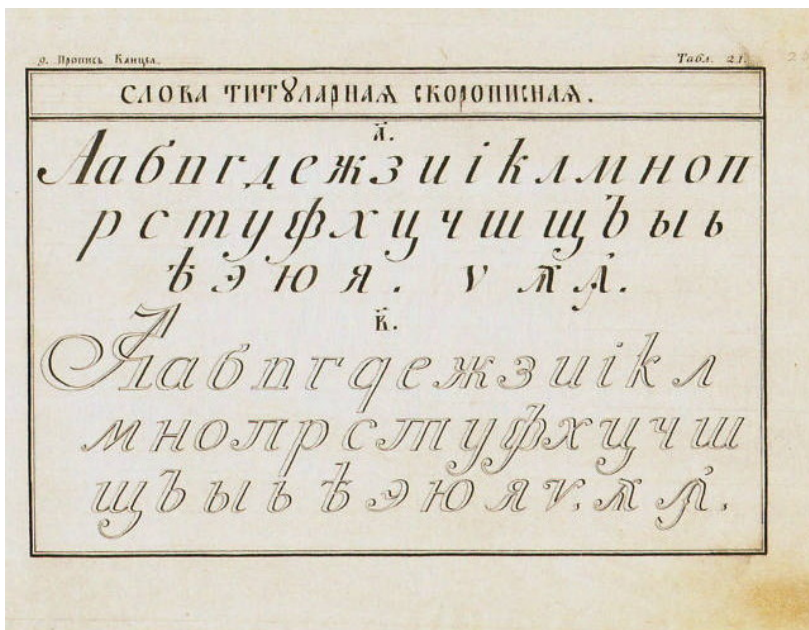 9. Пропись Канцел. Табл. 21.
СЛОВА ТИТꙊЛАРНАѦ СКОРОПИСНАѦ.
А.
Аабпгдежзиіклмноп
рстуфхцчшщъыь
ѣэюя. ѵ
В.
Аабпгдежзиікл
мнопрстуфхцчш
щъыьѣэюяѵ.